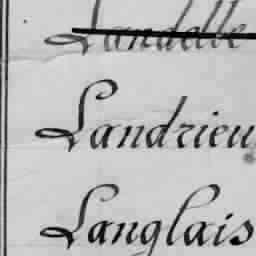 Landelle
Landrieu
Langlais